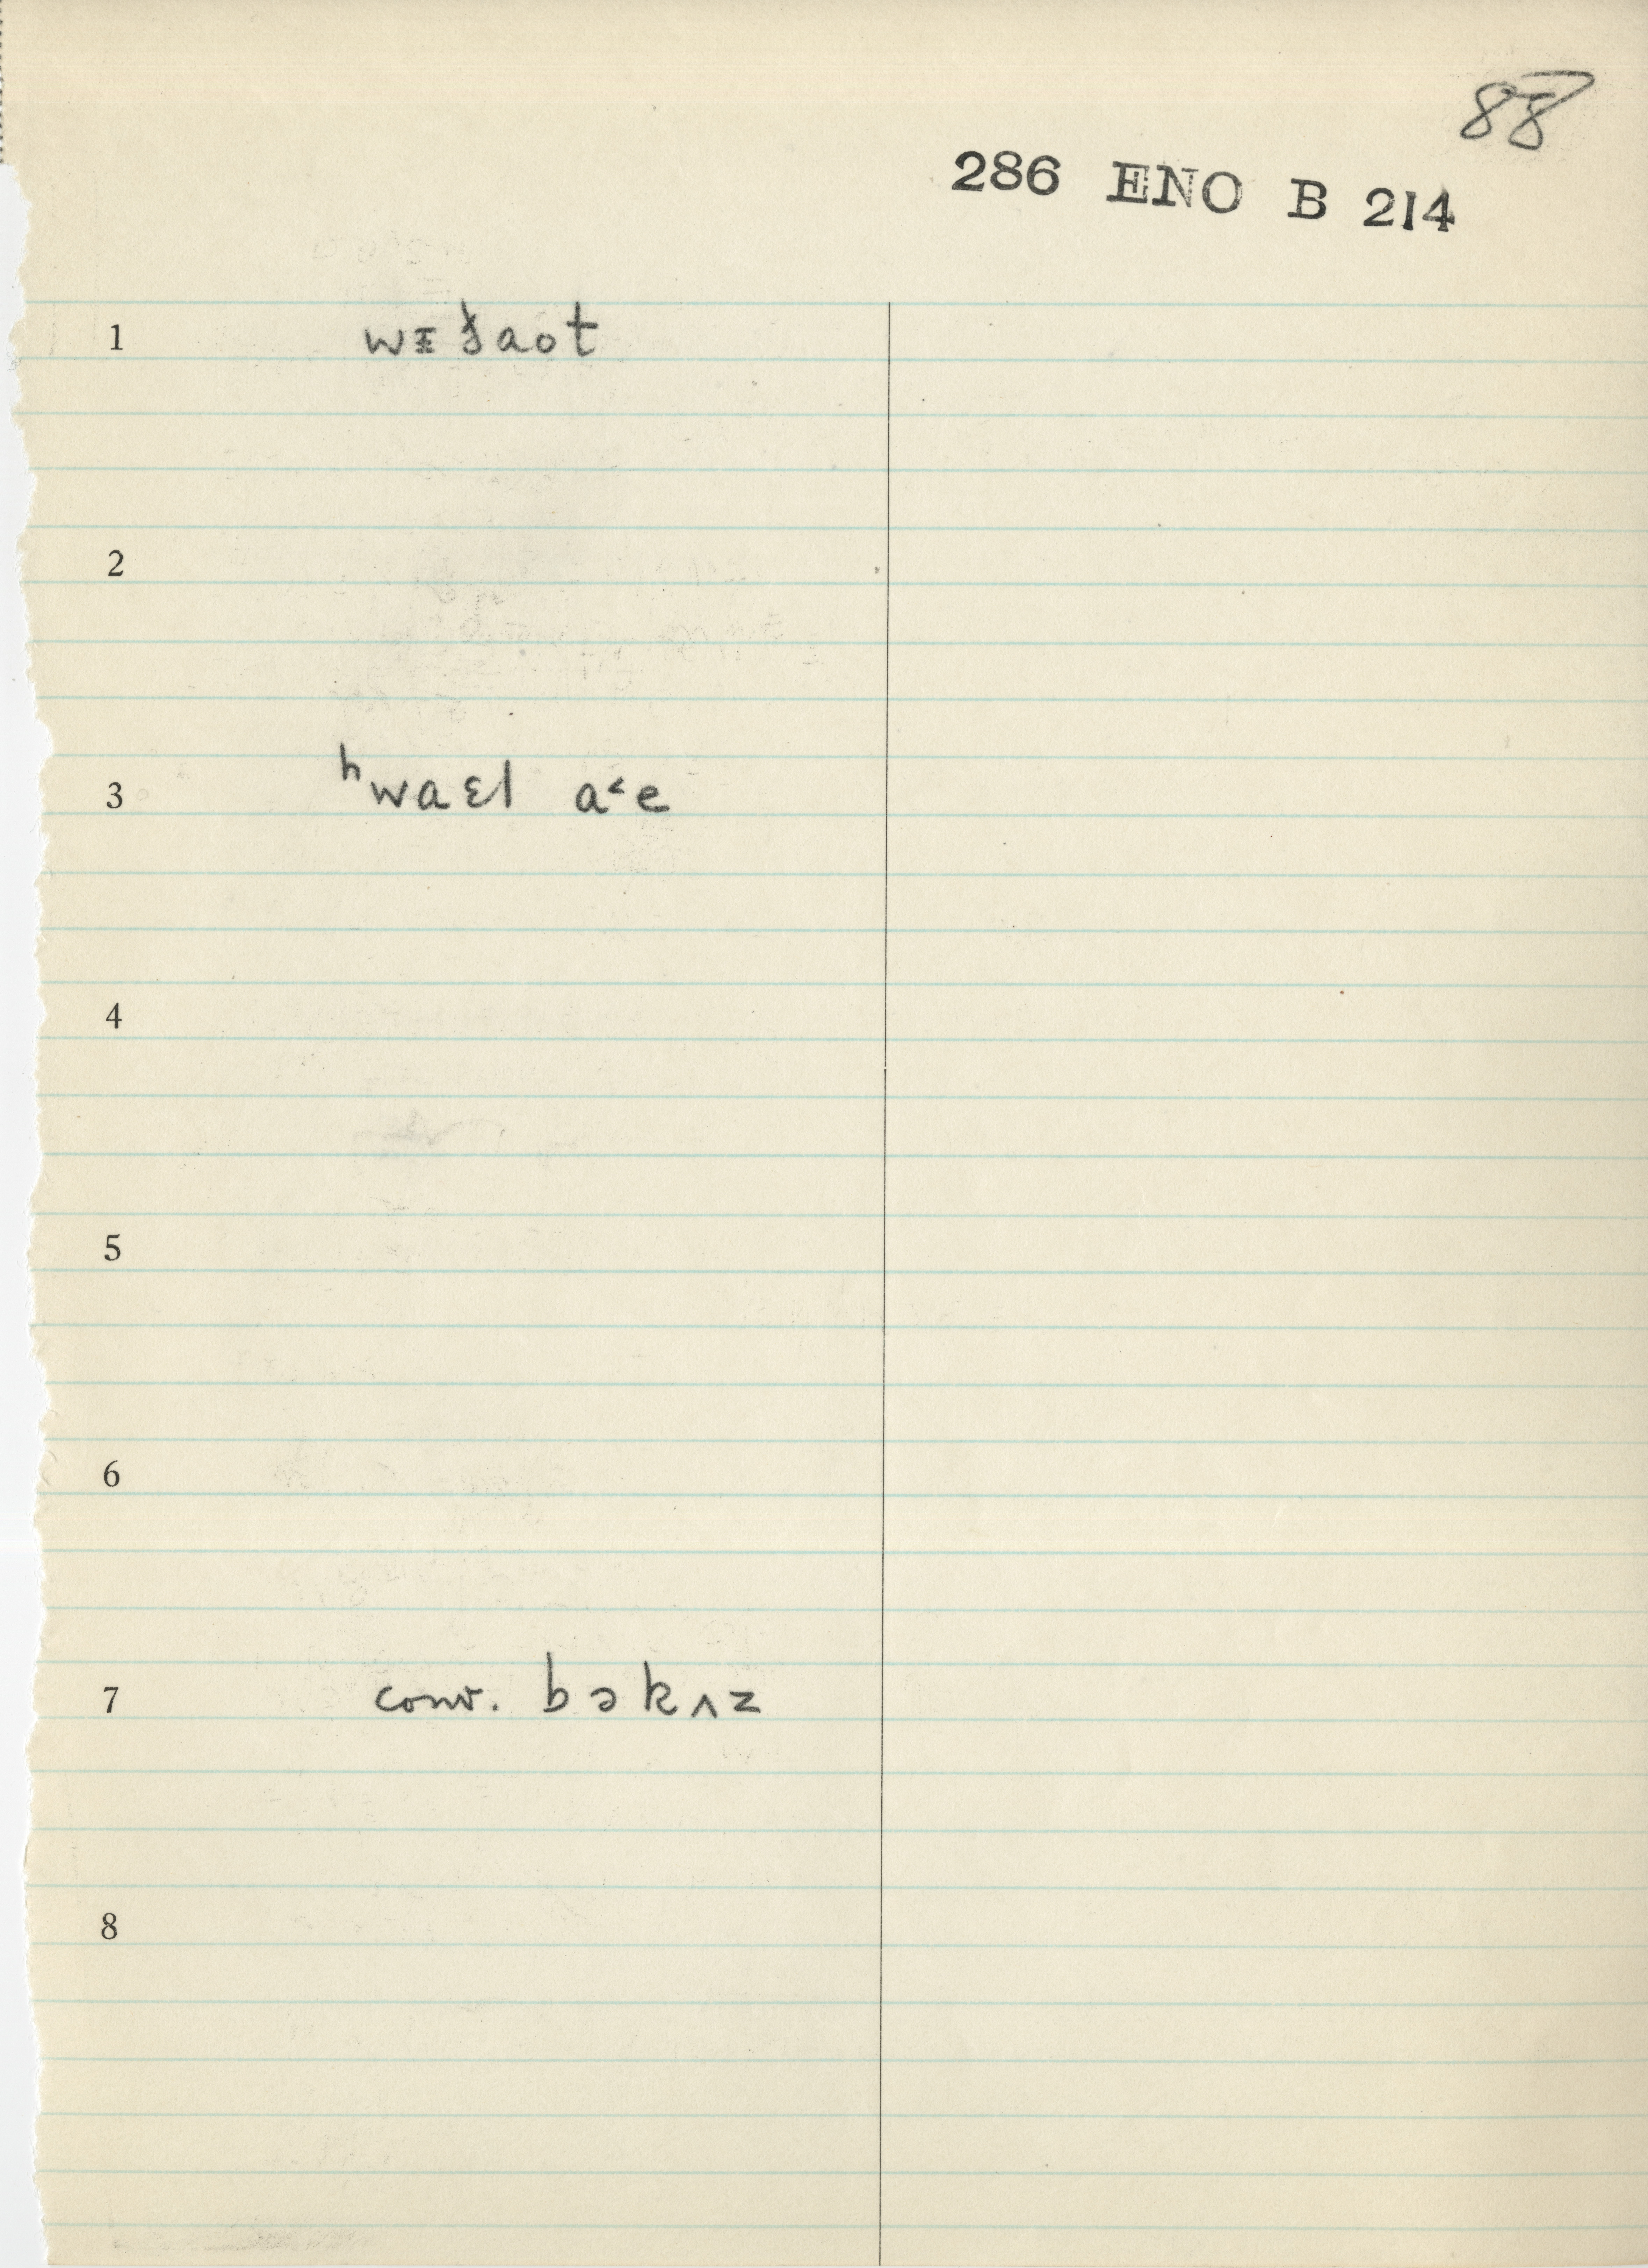 88
286 ENO B 214
1 wɪðaot
2
3 ʰwaɛl a˂e
4
5
6
7 conv. bəkʌz
8